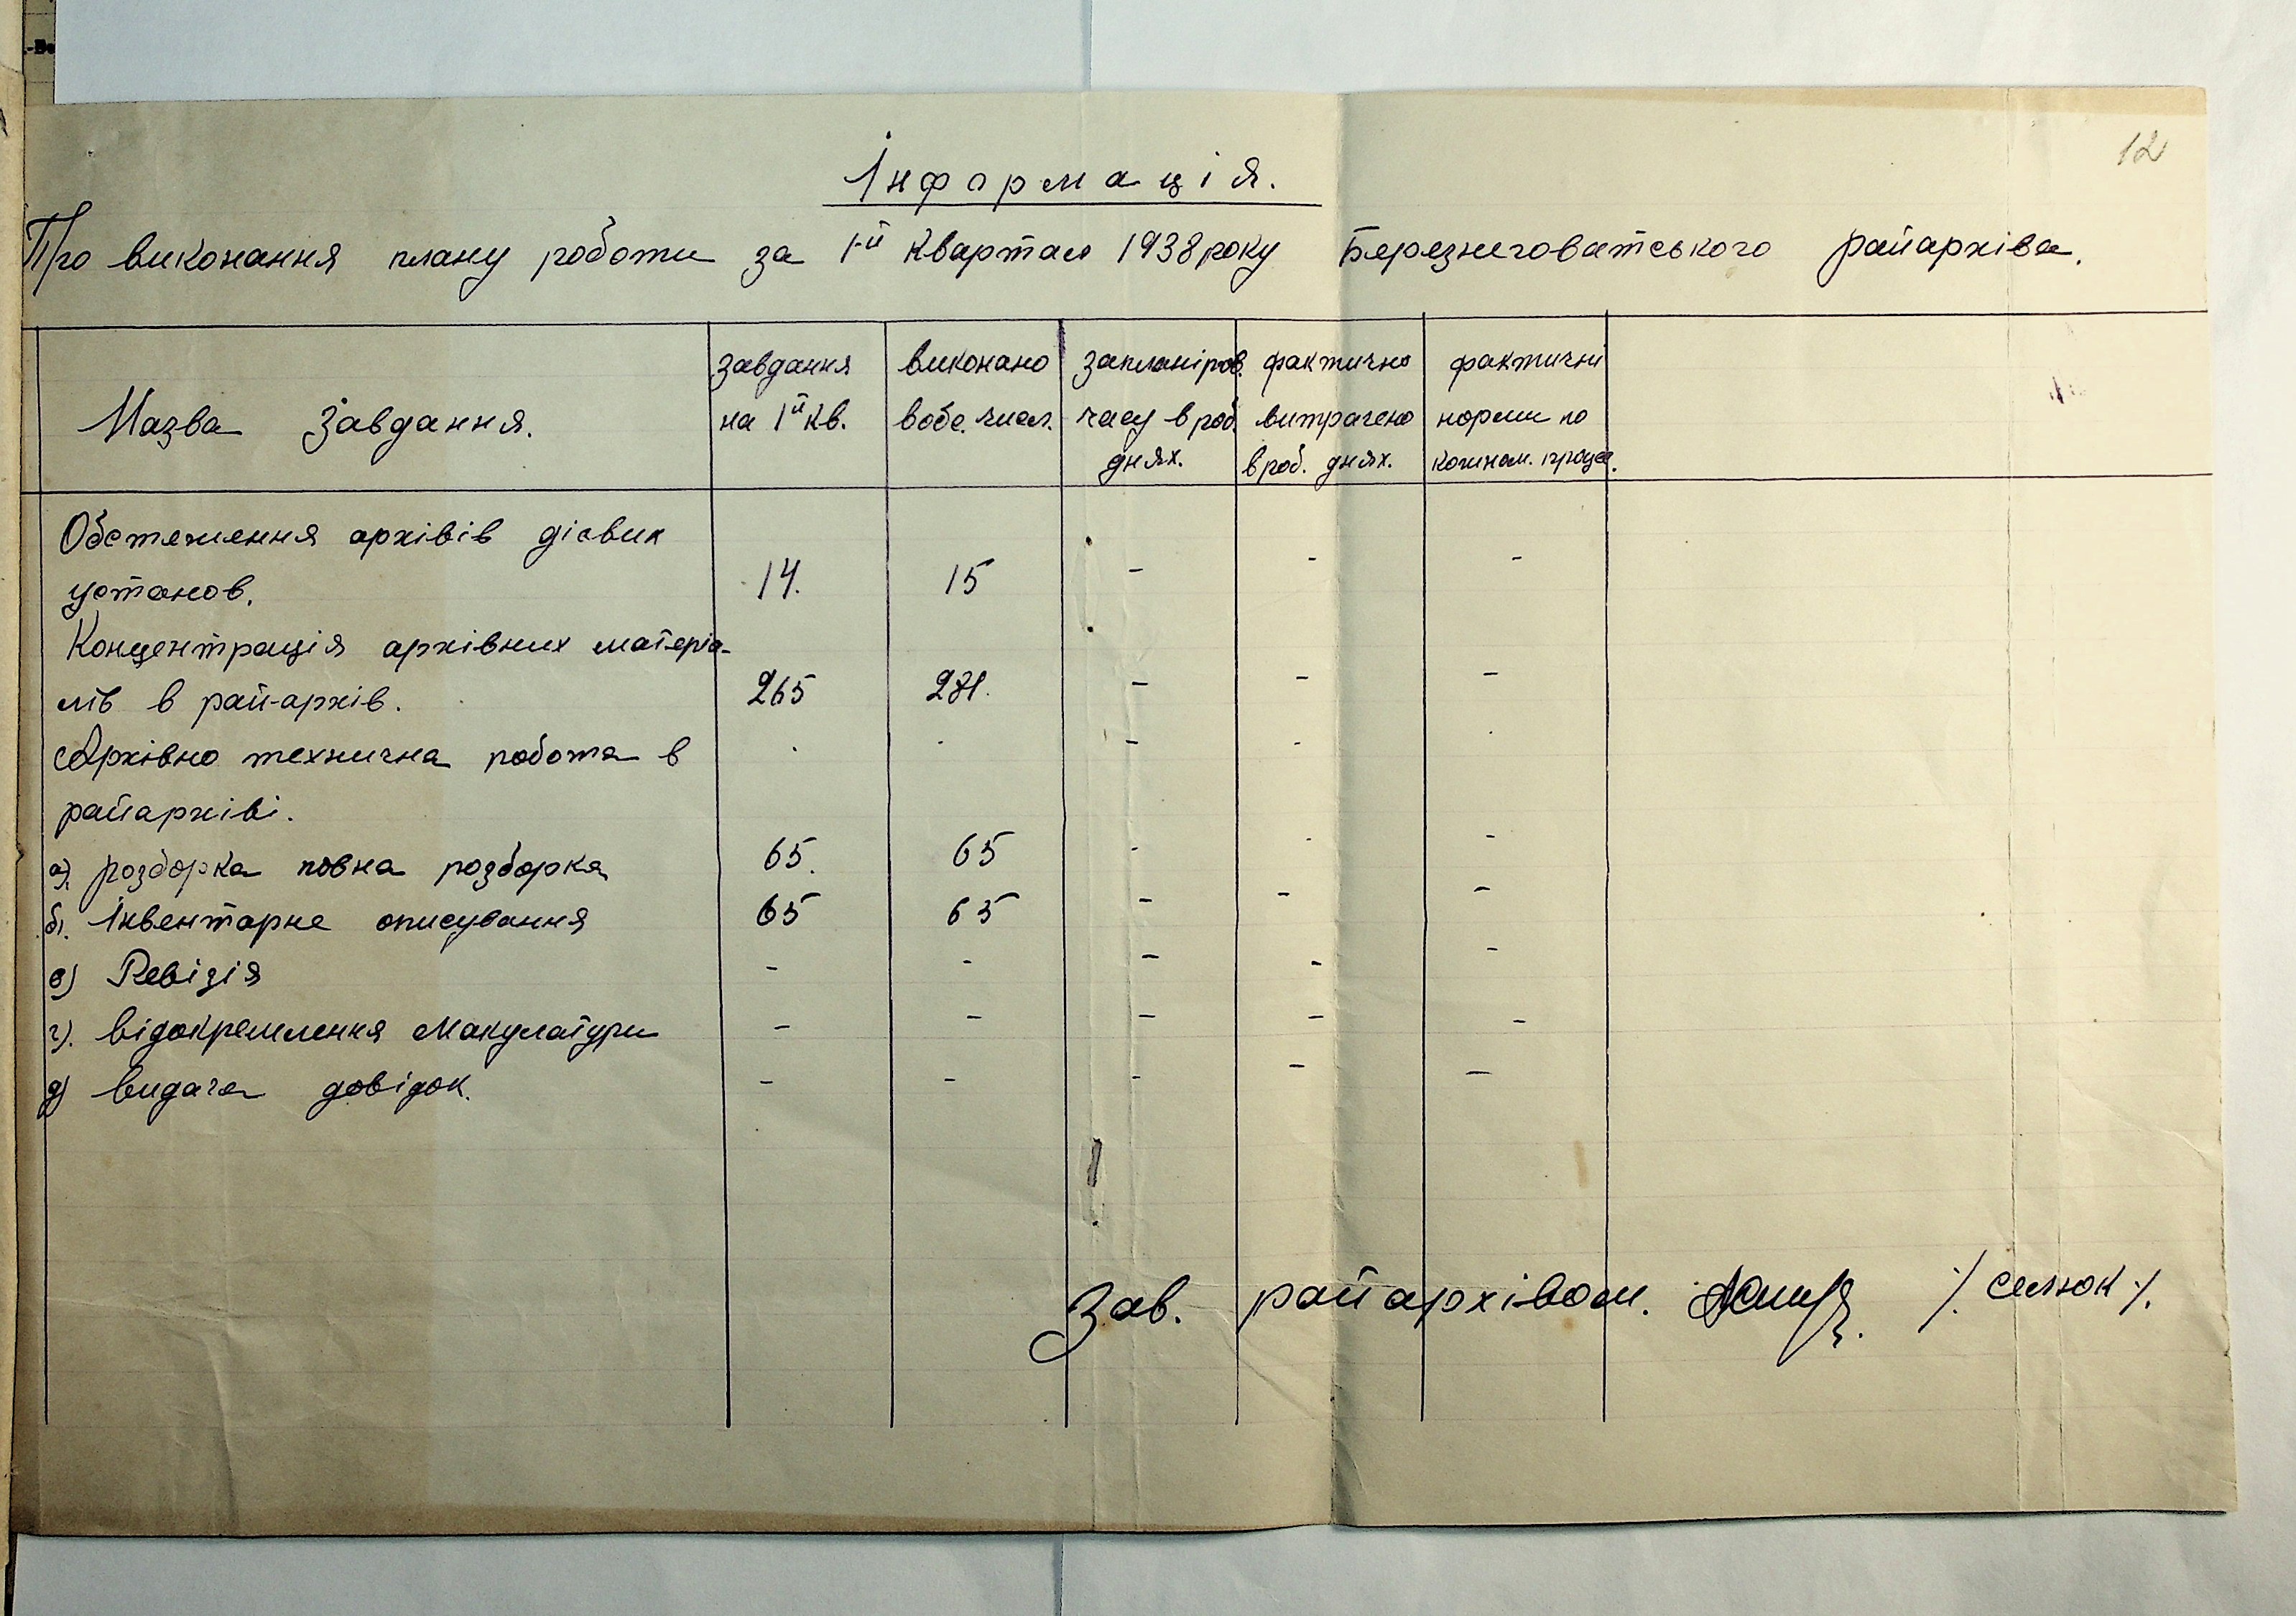 12
Інформація.
Про виконання плану роботи за 1-й квартал 1938 року Березниговатського райархіва.
Назва завдання.
завдання на 1й кв.
виконано в обс. числ.
запланіров. часу в роб. днях.
фактично витрачено в роб. днях.
фактичні норми по кожном. процес.
Обстеження архівів дієвих
установ. 14. 15 - - -
Концентрація архівних матеріа-
лів в рай-архів. 265 271. - - -
Архівно технична робота в - -
райархіві.
а). розборка повна розборка 65. 65 - - -
б). Інвентарне описування 65 65 - - -
в) Ревізія - - - - -
г). відокремлення макулатури - - - - -
д) видача довідок. - - - - -
Зав. райархівом. /. Сенюк /.